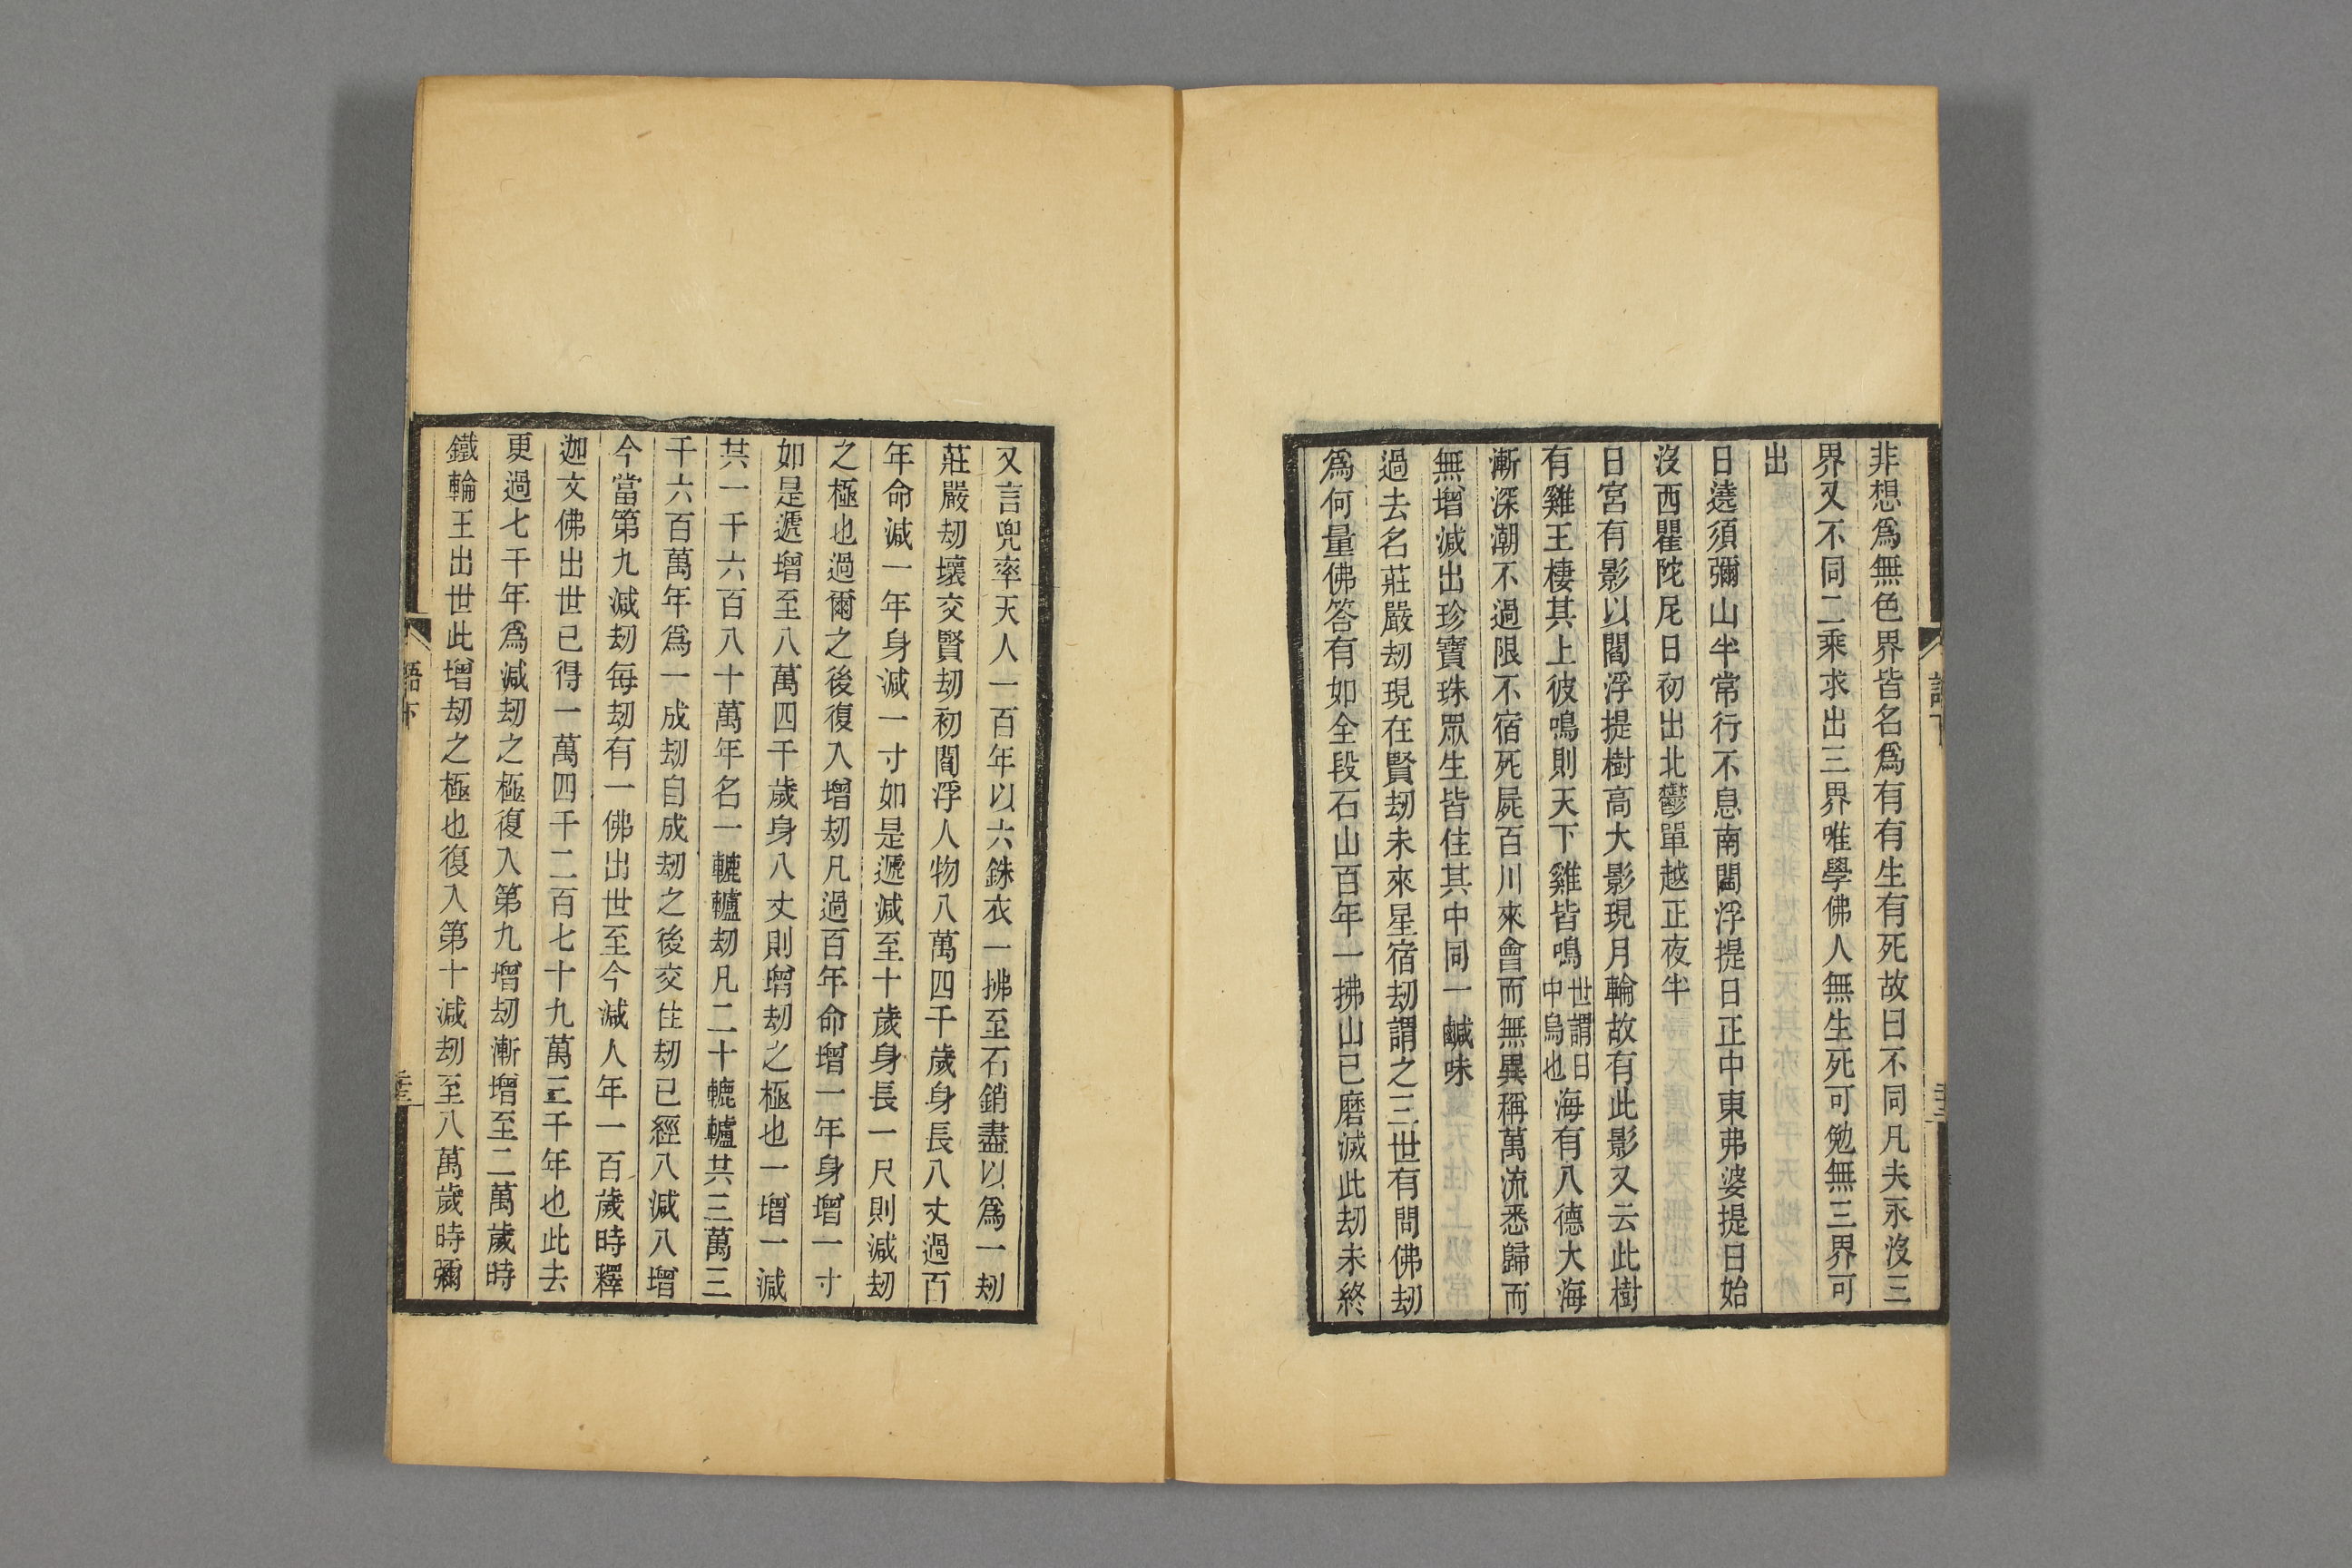 非想爲無色界皆名爲有有生有死故曰不同凡夫永沒三
界又不同二乘求出三界唯學佛人無生死可勉無三界可
出
日遶須彌山半常行不息南閻浮提日正中東弗婆提日始
沒西瞿陀尼日初出北鬱單越正夜半
日宮有影以閻浮提樹高大影現月輪故有此影又云此樹
有雞王棲其上彼鳴則天下雞皆鳴世謂日中烏也海有八德大海
漸深潮不過限不宿死屍百川來會而無異稱萬流悉歸而
無增減出珍寶珠眾生皆住其中同一鹹味
過去名莊嚴刼現在賢刼未來星宿刼謂之三世有問佛刼
爲何量佛答有如全段石山百年一拂山已磨滅此刼未終
又言兜率天人一百年以六銖衣一拂至石銷盡以爲一刼
莊嚴刼壞交賢刼初閻浮人物八萬四千歲身長八丈過百
年命減一年身減一寸如是遞減至十歲身長一尺則減刼
之極也過爾之後復入增刼凡過百年命增一年身增一寸
如是遞增至八萬四千歲身八丈則增刼之極也一增一減
共一千六百八十萬年名一轆轤刼凡二十轆轤共三萬三
千六百萬年爲一成刼自成刼之後交住刼已經八減八增
今當第九減刼每刼有一佛出世至今減人年一百歲時釋
迦文佛出世已得一萬四千二百七十九萬三千年也此去
更過七千年爲減刼之極復入第九增刼漸增至二萬歲時
鐵輪王出世此增刼之極也復入第十減刼至八萬歲時彌
語下